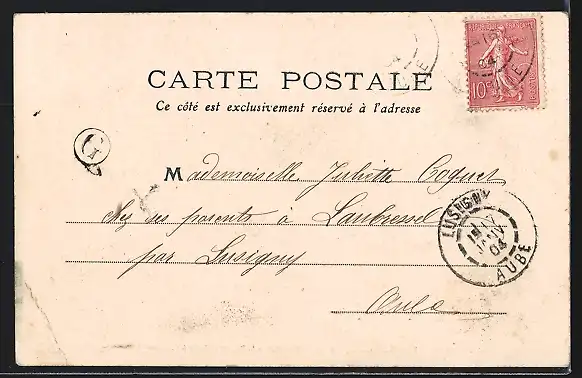 RÉPUBLIQUE FRANÇAISE
10c
04
CARTE POSTALE
Ce côté est exclusivement réservé à l'adresse
G
Mademoiselle Juliette Coquet
chez ses parents à Laubressel
par Lusigny
Aube
LUSIGNY
JANV
04
AUBE